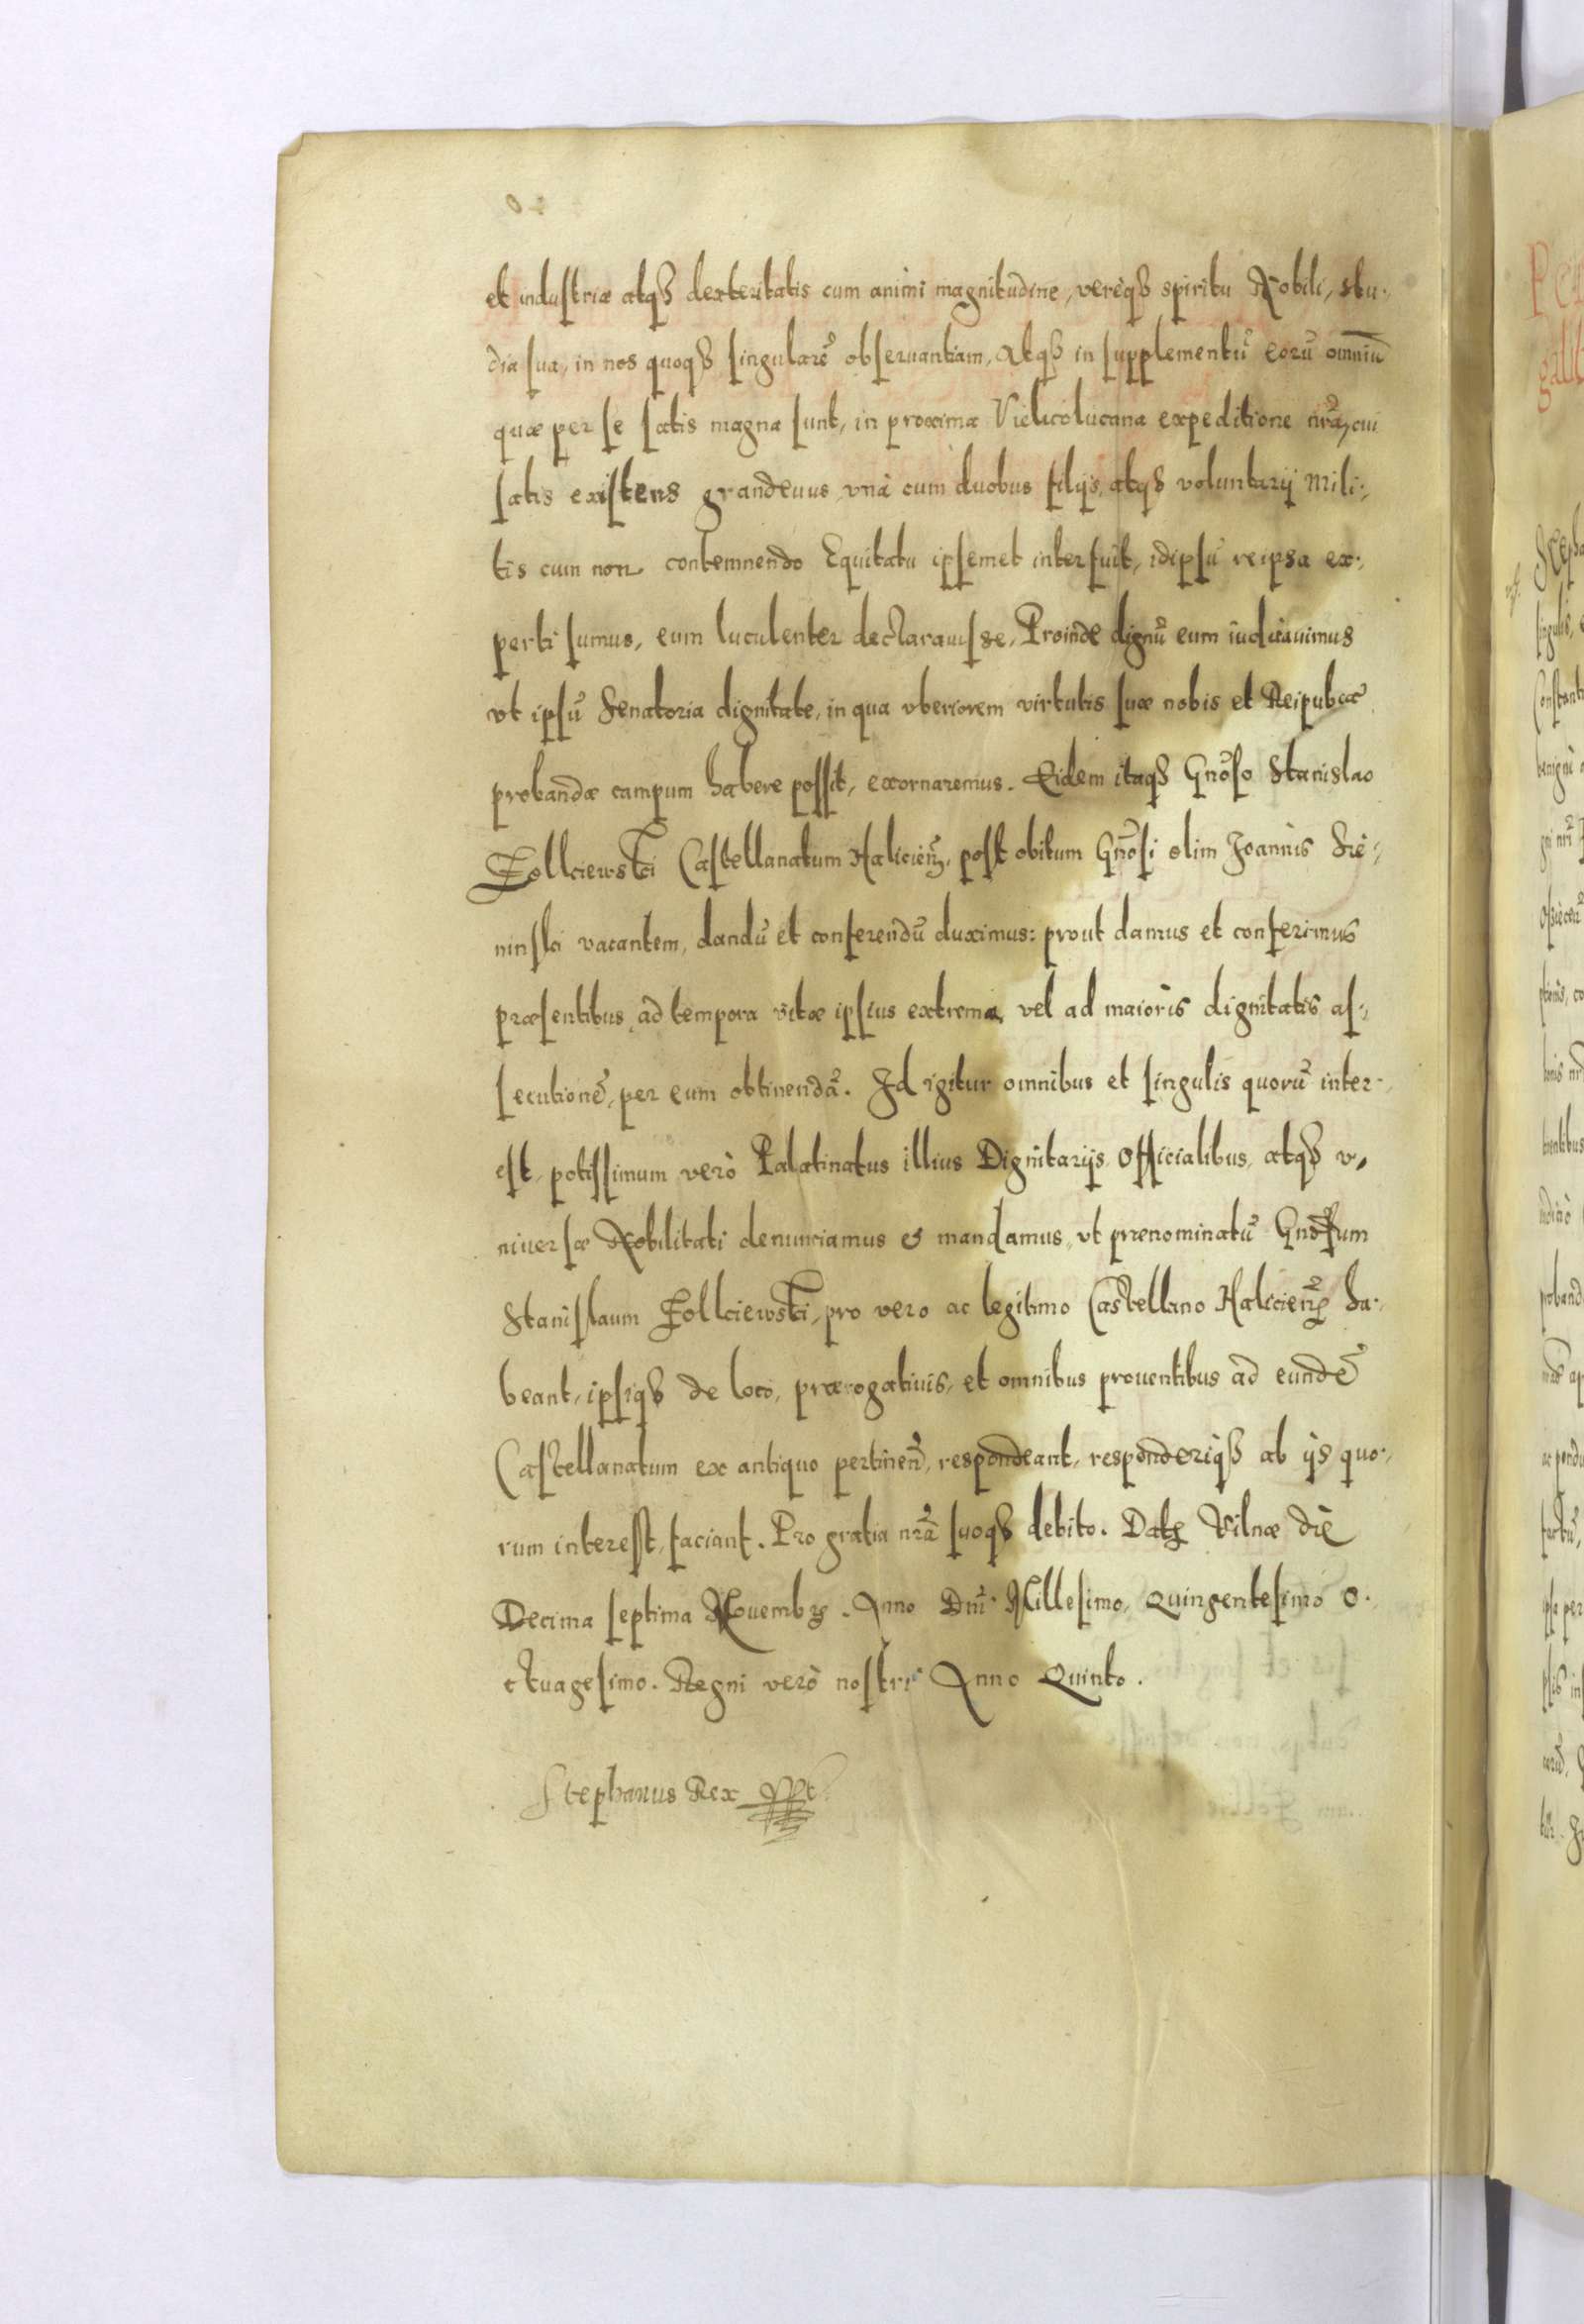 et industriæ atqȝ dexteritatis cum animi magnitudine, verèqȝ spiritu Nobili, stu-
dia sua, in nos quoqȝ singularē obseruantiam, Atqȝ in supplementū eorū omniū
quæ per se satis magna sunt, in proxima Vielicolucana expeditione nr̃a, cui
satis existens grandeuus, vnà cum duobus filijs, atqȝ voluntarij Mili-
tis cum non contemnendo Equitatu ipsemet interfuit, idipsū reipsa ex-
perti sumus, eum luculenter declarauisse, Proinde dignū eum iudicauimus
vt ipsū Senatoria dignitate, in qua vberiorem virtutis suæ nobis et Reipubcæ
probandæ campum habere possit, exornaremus. Eidem itaqȝ Gnoso Stanislao
Zolkiewski Castellanatum Halicien̄, post obitum Gnosi olim Joannis Sie-
ninski vacantem, dandū et conferendū duximus: prout damus et conferimus
præsentibus, ad tempora vitæ ipsius extrema, vel ad maioris dignitatis as-
secutionē, per eum obtinendā. Id igitur omnibus et singulis quorū inter-
est, potissimum verò Palatinatus illius Dignitarijs, Officialibus, atqȝ v-
niuersæ Nobilitati denunciamus & mandamus, vt prænominatū Gnosum
Stanislaum Zolkiewski, pro vero ac legitimo Castellano Halicien̄ ha-
beant, ipsiqȝ de loco, prærogatiuis, et omnibus prouentibus ad eundē
Castellanatum ex antiquo pertinen̄, respondeant, responderiqȝ ab ijs quo-
rum interest, faciant. Pro gratia nr̃a suoqȝ debito. Datȝ Vilnæ die
Decima septima Nouembrȝ. Anno Dnī Millesimo, Quingentesimo O-
ctuagesimo. Regni verò nostri Anno Quinto.
Stephanus Rex sst